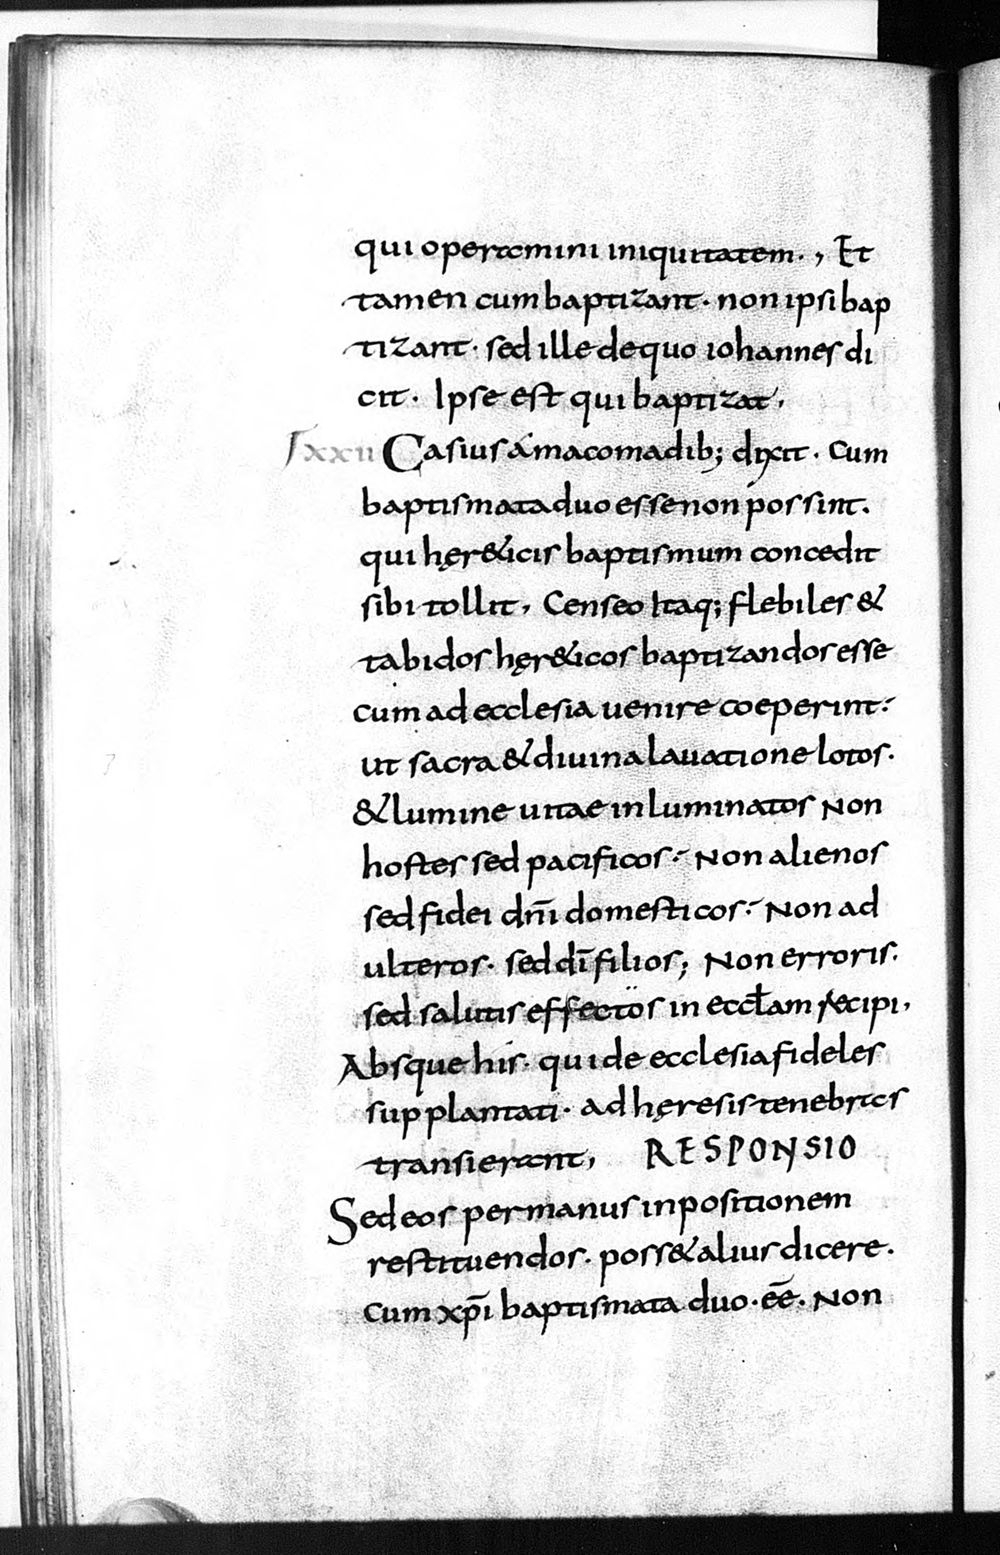 qui operamini iniquitatem·, Et
tamen cum baptizant· non ipsi bap
tizant· sed ille de quo iohannes di
cit· Ipse est qui baptizat,
xxii Casius a macomadib; dixit· Cum
baptismata duo esse non possint.
qui hęr&icis baptismum concedit
sibi tollit, Censeo itaq; flebiles &
tabidos hęr&icos baptizandos esse
cum ad ecclesia uenire coeperint:
ut sacra & diuina lauatione lotos·
& lumine uitae inluminatos Non
hostes sed pacificos: Non alienos
sed fidei dn̄i domesticos: Non ad
ulteros· sed dī filios; Non erroris·
sed salutis effectos in eccłam recipi,
Absque his· qui de ecclesia fideles
supplantati· ad hęresis tenebras
transierant, RESPONSIO
Sed eos per manus inpositionem
restituendos· poss& alius dicere·
Cum xp̄i baptismata duo·ēē· Non